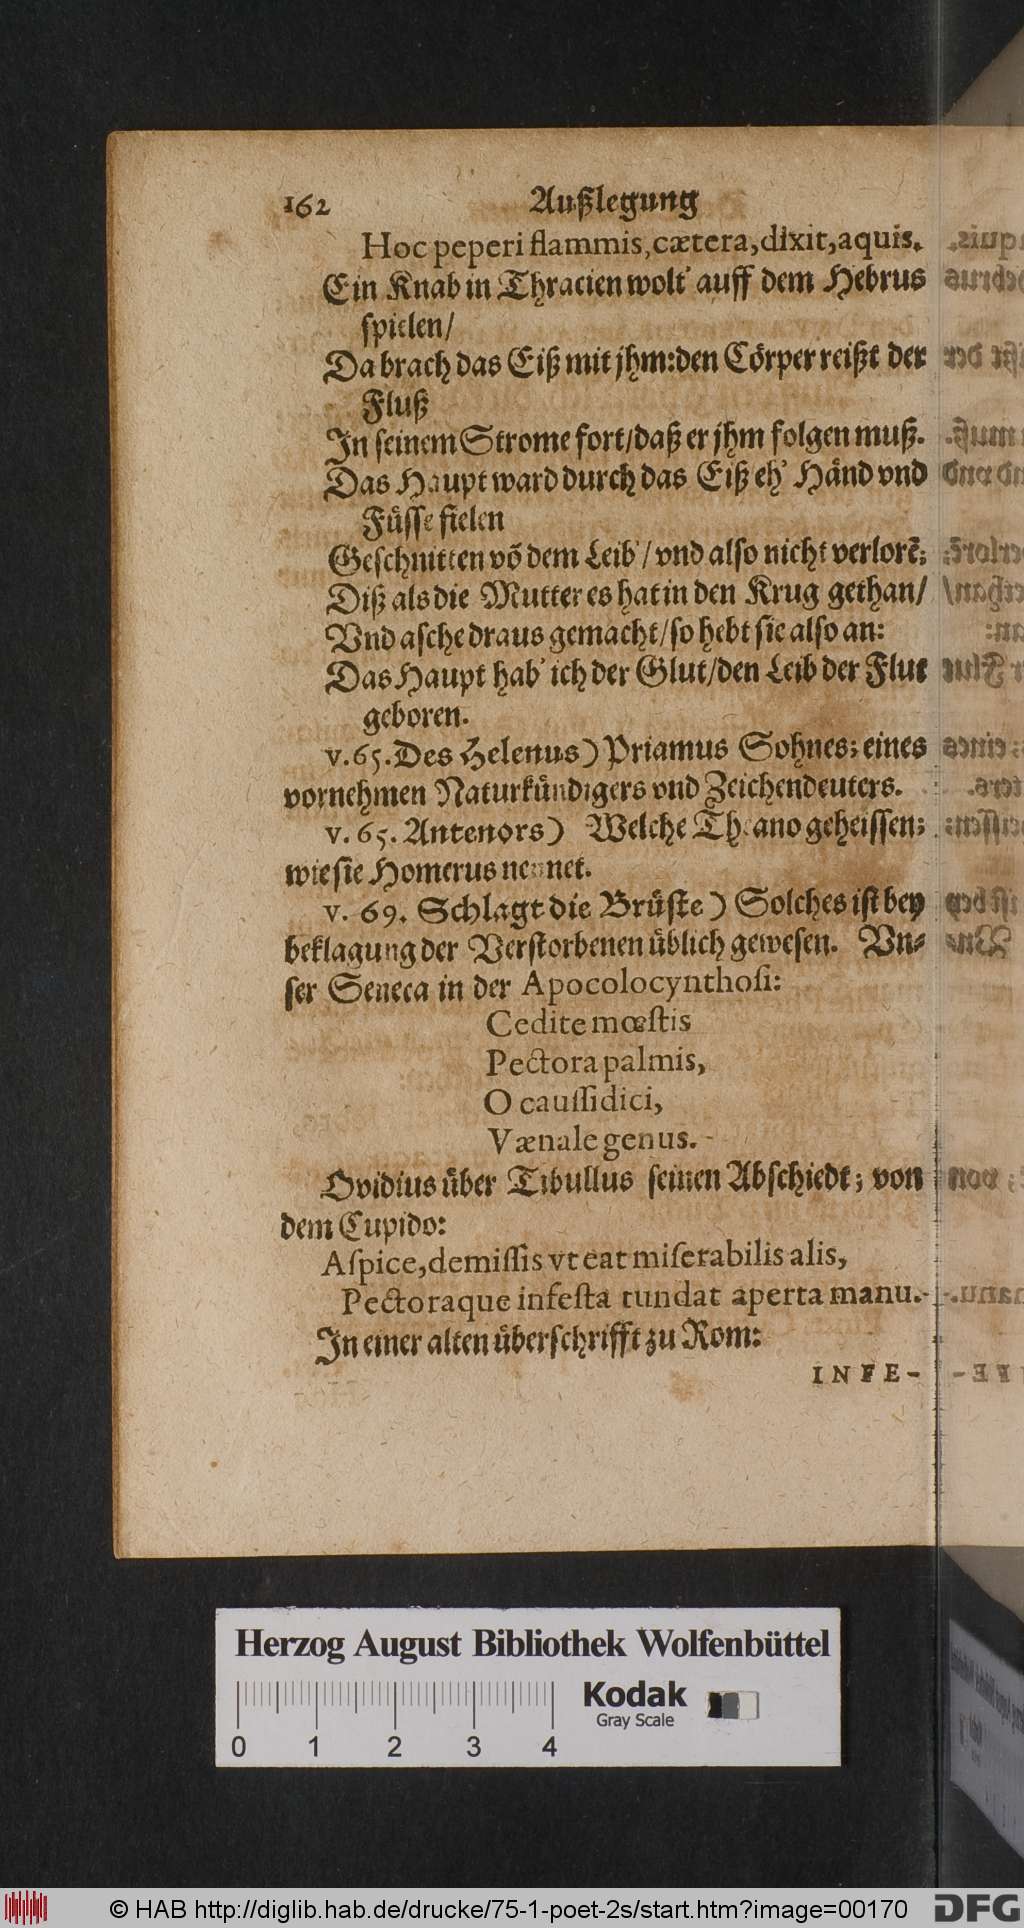 162 Außlegung
Hoc peperi flammis, cætera, dixit, aquis.
Ein Knab in Thracien wolt' auff dem Hebrus
spielen/
Da brach das Eiß mit jhm: den Cörper reißt der
Fluß
In seinem Strome fort/ daß er jhm folgen muß.
Das Haupt ward durch das Eiß eh' Händ vnd
Füsse fielen
Geschnitten võ dem Leib'/ vnd also nicht verlorẽ;
Diß als die Mutter es hat in den Krug gethan/
Vnd asche draus gemacht/ so hebt sie also an:
Das Haupt hab' ich der Glut/ den Leib der Flut
geboren.
v. 65. Des Helenus) Priamus Sohnes; eines
vornehmen Naturkündigers vnd Zeichendeuters.
v. 65. Antenors) Welche Theano geheissen;
wie sie Homerus nennet.
v. 69. Schlagt die Brüste) Solches ist bey
beklagung der Verstorbenen üblich gewesen. Vn⸗
ser Seneca in der Apocolocynthosi:
Cedite mœstis
Pectora palmis,
O caussidici,
Vænale genus.
Ovidius über Tibullus seinen Abschiedt; von
dem Cupido:
Aspice, demissis vt eat miserabilis alis,
Pectoraque infesta tundat aperta manu.
In einer alten überschrifft zu Rom:
INFE-
Herzog August Bibliothek Wolfenbüttel
Kodak
Gray Scale
0 1 2 3 4
© HAB http://diglib.hab.de/drucke/75-1-poet-2s/start.htm?image=00170
DFG